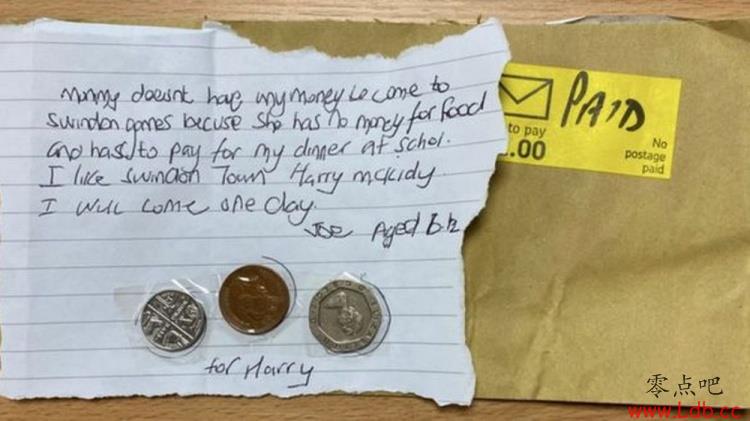 Mummy doesnt have any money to come to
swindon games becuse she has no money for food
and has to pay for my dinner at schol.
I like swindon Town Harry mckidy.
I will come one day.
Joe Aged 6 ½
for Harry
PAID
to pay
.00
No
postage
paid
零点吧
www.Ldb.cc